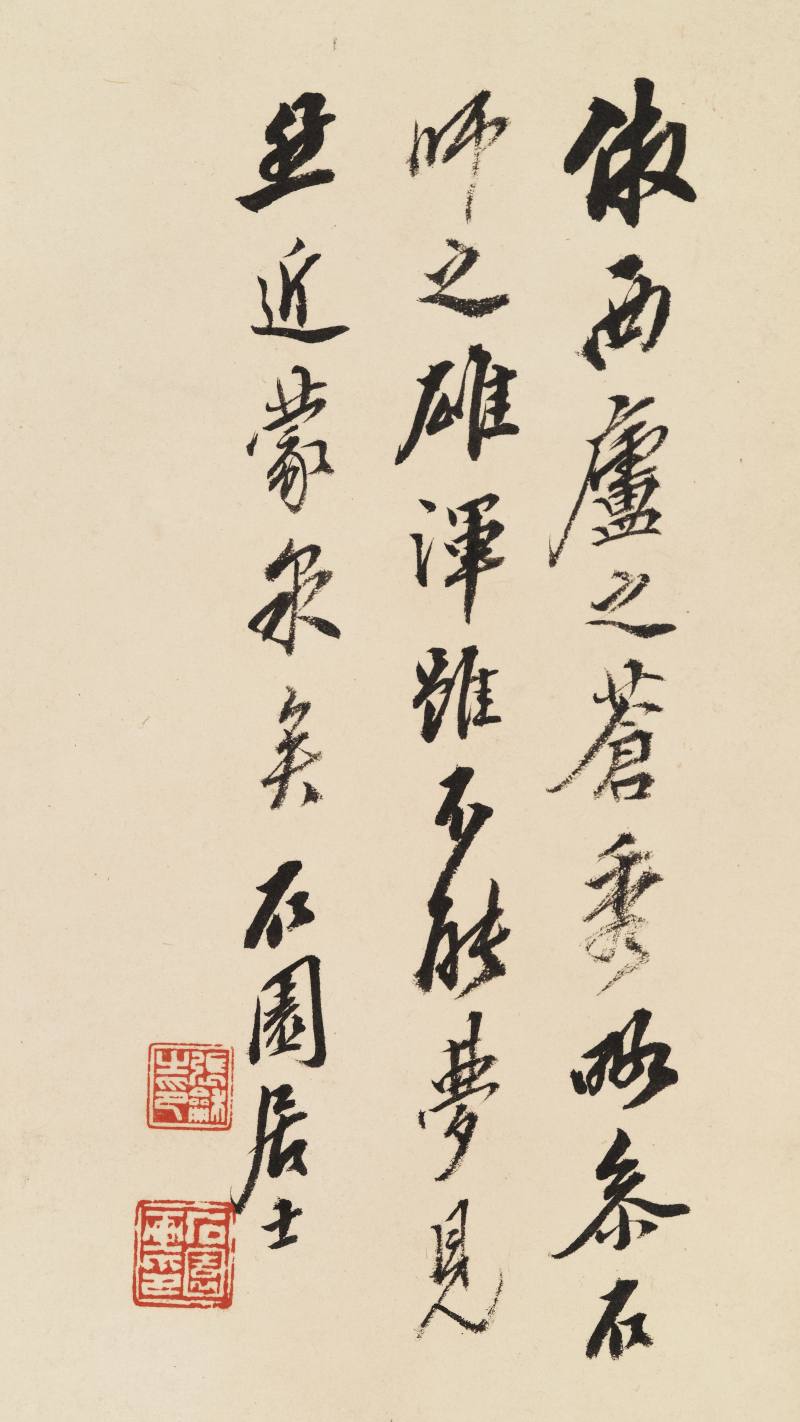 倣西廬之蒼秀略參石
師之雄渾雖不能夢見
然近蒙泉矣 石園居士
張龢之印
石園画印